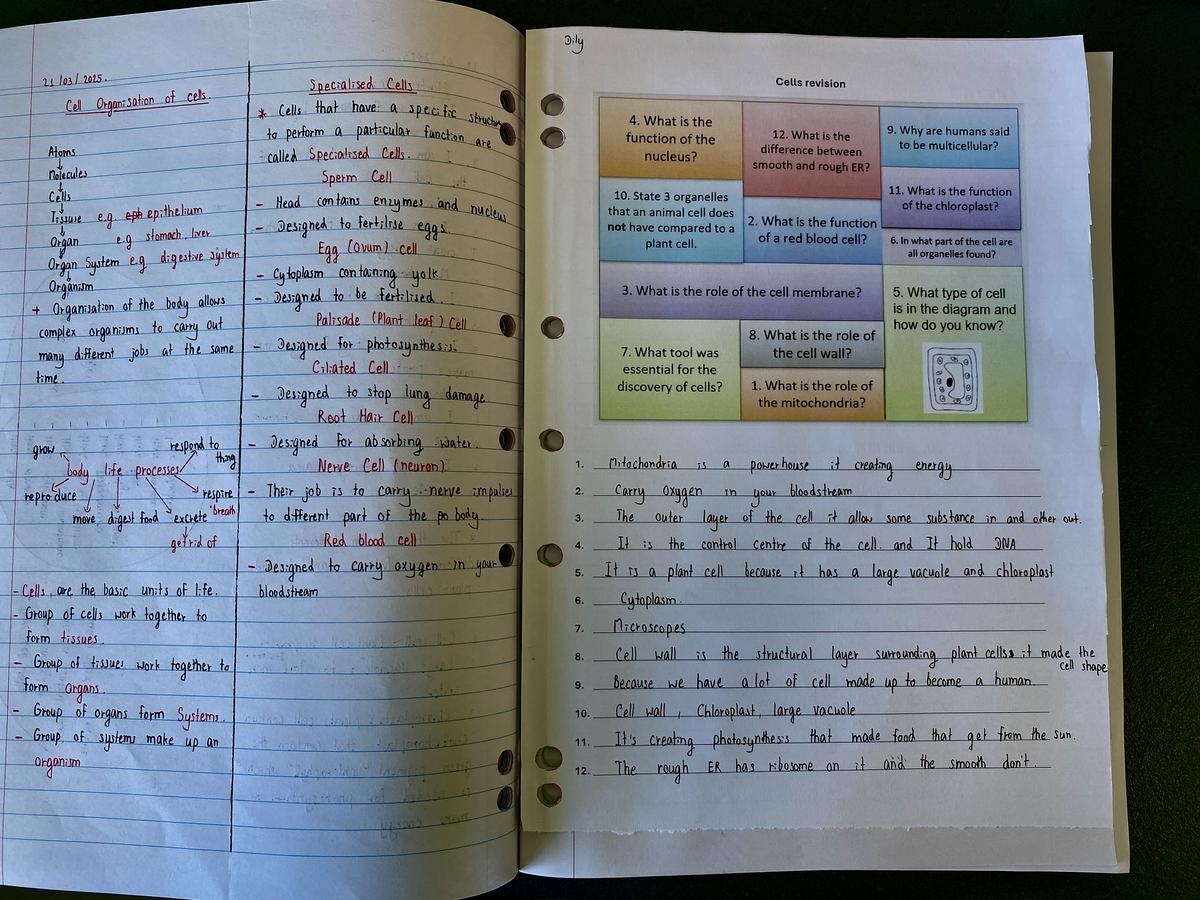 21/03/2025.
Cell Organisation of cells.
Atoms
Molecules
Cells
Tissue e.g. eph epithelium
Organ e.g stomach, liver
Organ System e.g digestive system
Organism
+ Organisation of the body allows
complex organisms to carry out
many different jobs at the same
time.
grow
respond to
thing
body life processes
reproduce
respire
"breath
move
digest food
excrete
get rid of
- Cells are the basic units of life.
- Group of cells work together to
form tissues.
- Group of tissues work together to
form organs.
- Group of organs form Systems.
- Group of systems make up an
organism
Specialised Cells
* Cells that have a specific structure
to perform a particular function are
called Specialised Cells.
Sperm Cell
- Head contains enzymes and nucleus
- Designed to fertilise eggs.
Egg (Ovum) cell
- Cytoplasm containing yolk
- Designed to be fertilised.
Palisade (Plant leaf) Cell
- Designed for photosynthesis.
Ciliated Cell
- Designed to stop lung damage
Root Hair Cell
- Designed for absorbing water.
Nerve Cell (neuron)
- Their job is to carry nerve impulses
to different part of the po body.
Red blood cell
- Designed to carry oxygen in your
bloodstream
Dily
Cells revision
4. What is the
function of the
nucleus?
12. What is the
difference between
smooth and rough ER?
9. Why are humans said
to be multicellular?
10. State 3 organelles
that an animal cell does
not have compared to a
plant cell.
2. What is the function
of a red blood cell?
11. What is the function
of the chloroplast?
6. In what part of the cell are
all organelles found?
3. What is the role of the cell membrane?
5. What type of cell
is in the diagram and
how do you know?
7. What tool was
essential for the
discovery of cells?
8. What is the role of
the cell wall?
1. What is the role of
the mitochondria?
1. Mitochondria is a powerhouse it creating energy
2. Carry oxygen in your bloodstream
3. The outer layer of the cell it allow some substance in and other out.
4. It is the control centre of the cell. and It hold DNA
5. It is a plant cell because it has a large vacuole and chloroplast
6. Cytoplasm.
7. Microscopes
8. Cell wall is the structural layer surrounding plant cells it made the
cell shape
9. Because we have a lot of cell made up to become a human
10. Cell wall, Chloroplast, large vacuole
11. It's creating photosynthesis that made food that get from the sun.
12. The rough ER has ribosome on it and the smooth don't.